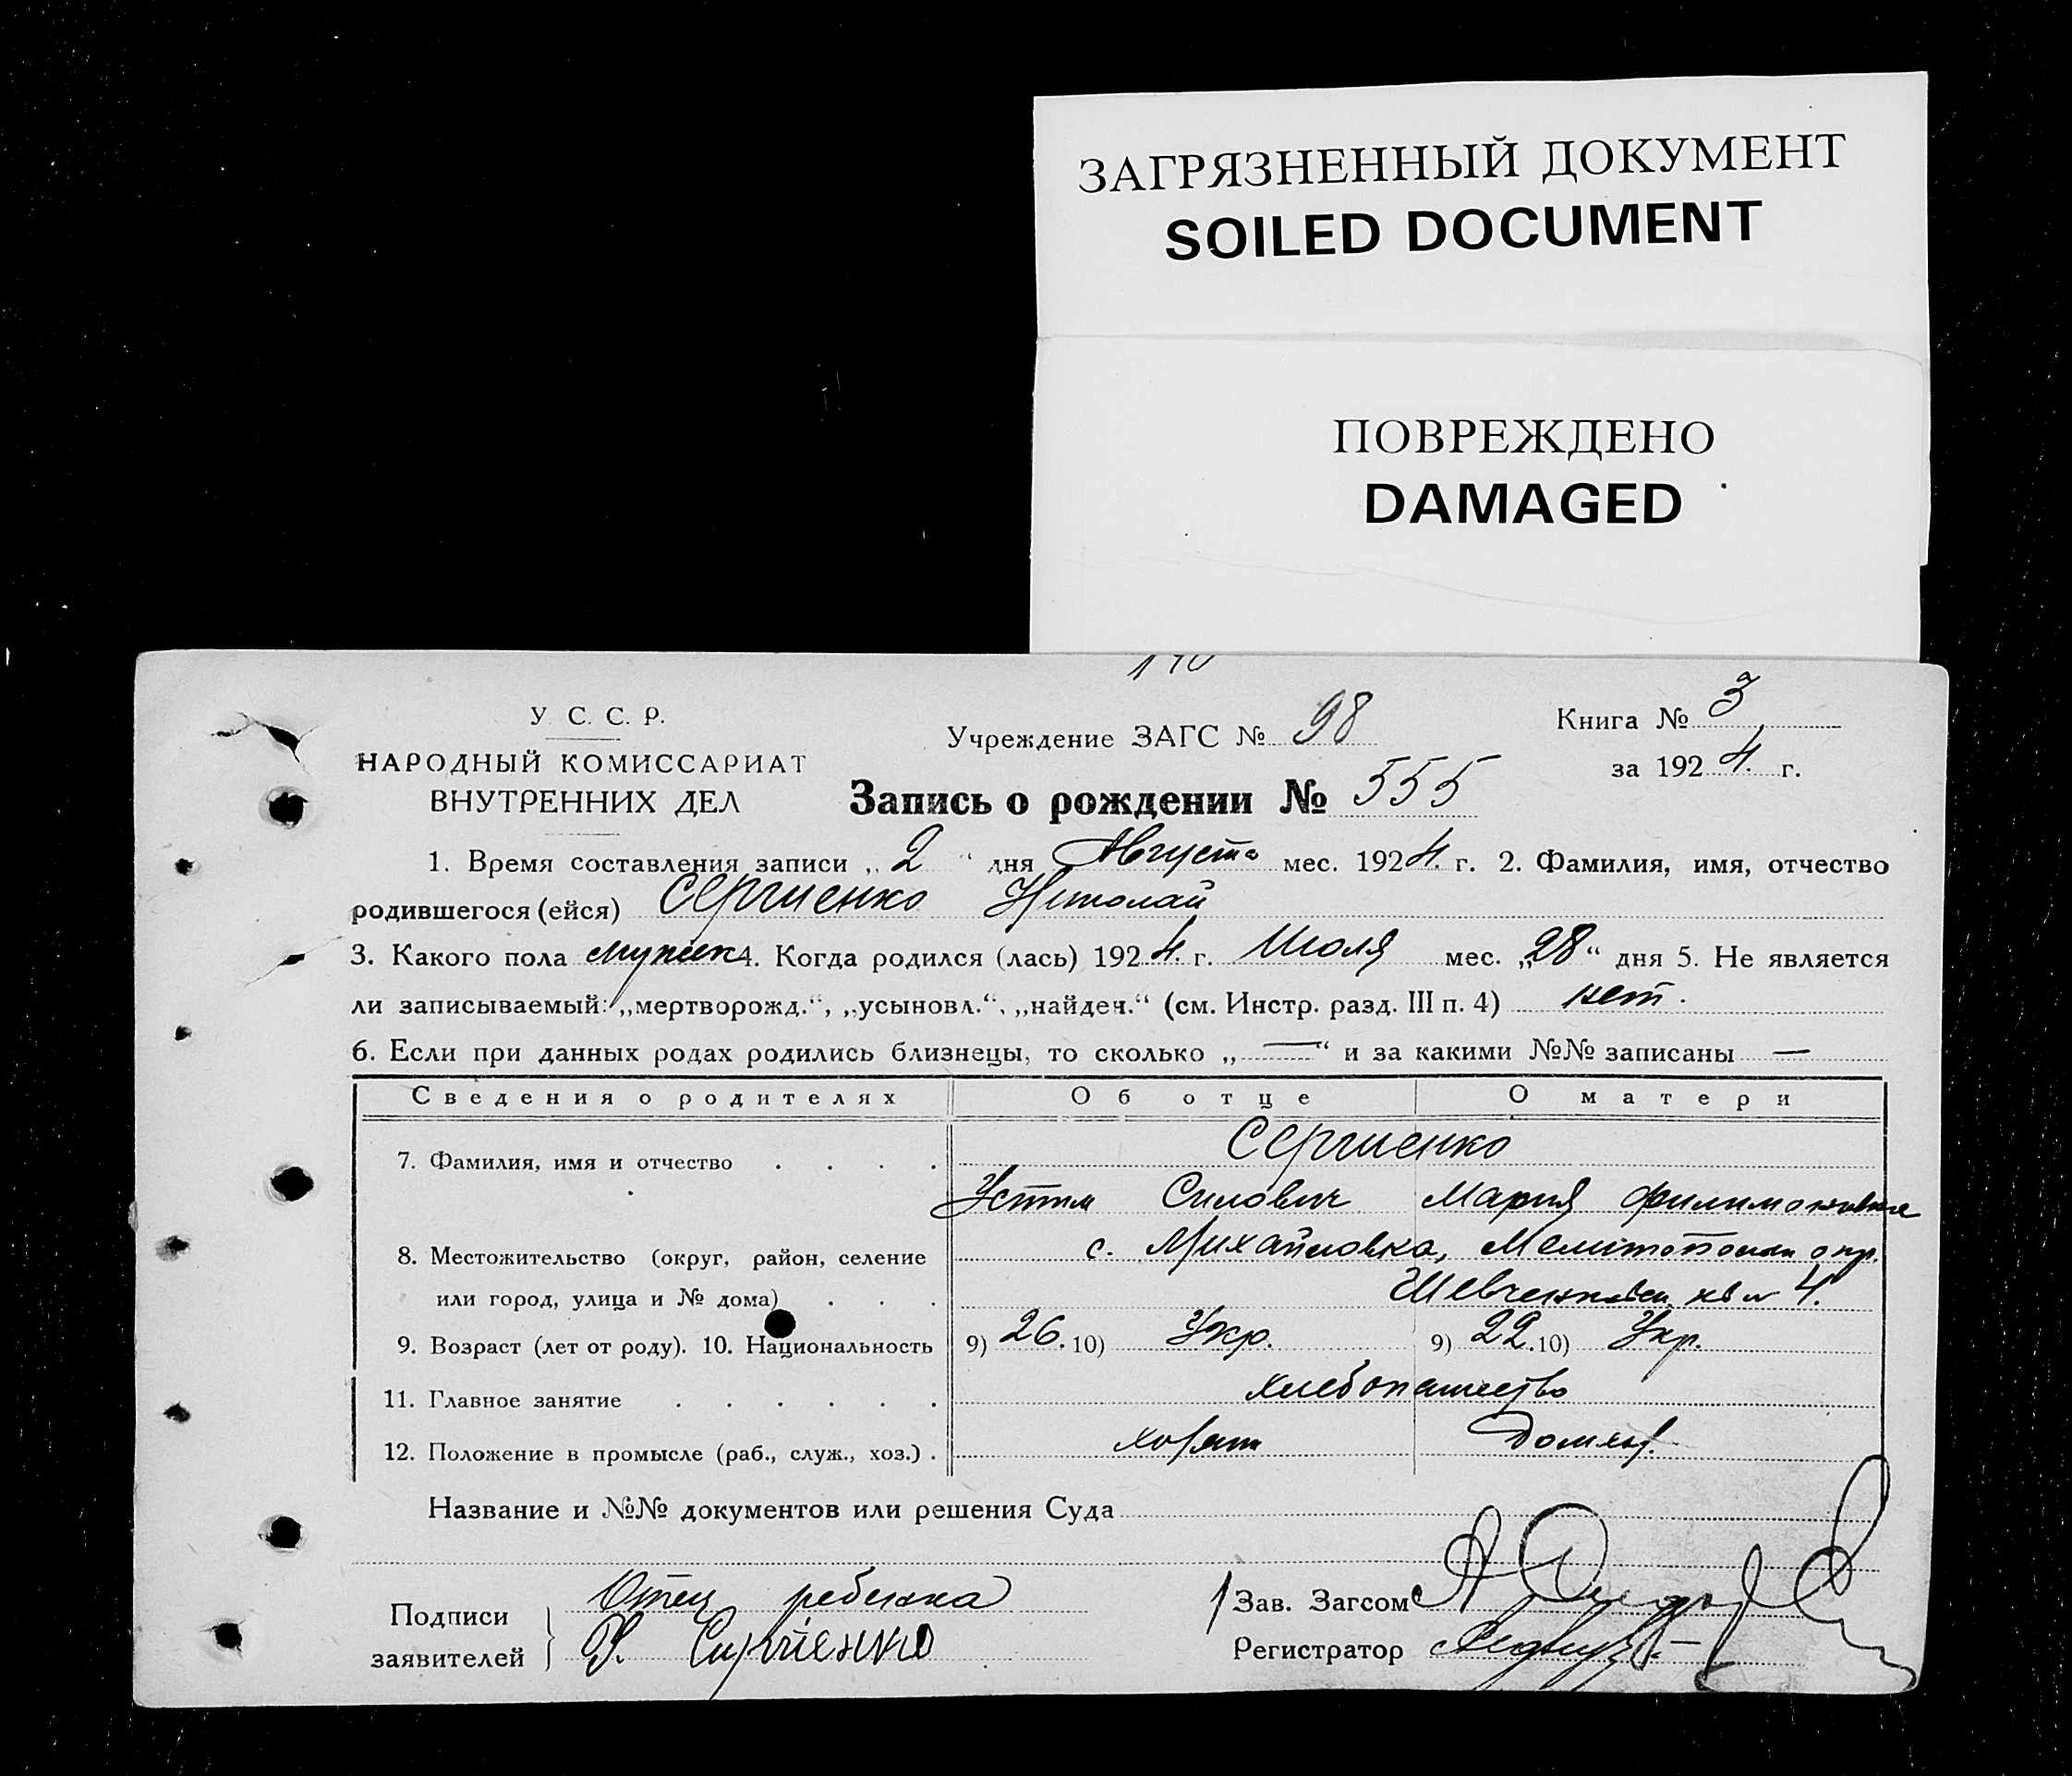 ЗАГРЯЗНЕННЫЙ ДОКУМЕНТ
SOILED DOCUMENT
ПОВРЕЖДЕНО
DAMAGED
У. С. С. Р.
НАРОДНЫЙ КОМИССАРИАТ
ВНУТРЕННИХ ДЕЛ
Учреждение ЗАГС № 98
Книга № 3
за 1924 г.
Запись о рождении № 555
1. Время составления записи „2“ дня Августа мес. 1924 г. 2. Фамилия, имя, отчество
родившегося (ейся) Сергиенко Николай
3. Какого пола мужск 4. Когда родился (лась) 1924 г. Июля мес. „28“ дня 5. Не является
ли записываемый: „мертворожд.“, „усыновл.“, „найден.“ (см. Инстр. разд. III п. 4) нет.
6. Если при данных родах родились близнецы, то сколько „—“ и за какими №№ записаны —
Сведения о родителях Об отце О матери
7. Фамилия, имя и отчество . . . . Сергиенко
Устин Силович Мария Филимоновна
8. Местожительство (округ, район, селение с. Михайловка, Мелитопольск окр.
или город, улица и № дома) . . . Шевченковск кв № 4.
9. Возраст (лет от роду). 10. Национальность 9) 26. 10) Укр. 9) 22. 10) Укр.
11. Главное занятие . . . . . . хлебопашество
12. Положение в промысле (раб., служ., хоз.) . хозяин Домхоз.
Название и №№ документов или решения Суда
Подписи Отец ребенка
заявителей Сергиенко
Зав. Загсом
Регистратор